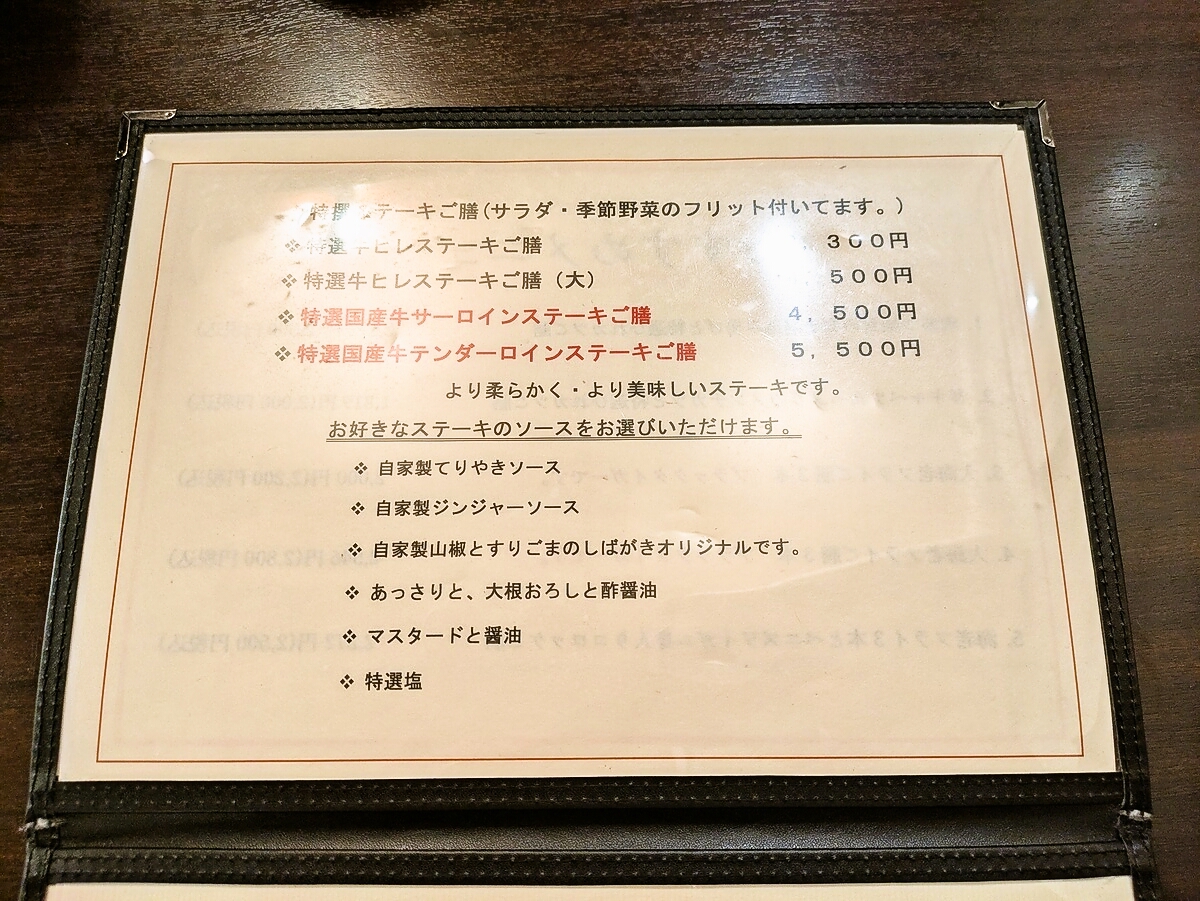 特撰ステーキご膳(サラダ・季節野菜のフリット付いてます。)
❖特選牛ヒレステーキご膳 ,300円
❖特選牛ヒレステーキご膳（大） 500円
❖特選国産牛サーロインステーキご膳 4,500円
❖特選国産牛テンダーロインステーキご膳 5,500円
より柔らかく・より美味しいステーキです。
お好きなステーキのソースをお選びいただけます。
❖ 自家製てりやきソース
❖ 自家製ジンジャーソース
❖ 自家製山椒とすりごまのしばがきオリジナルです。
❖ あっさりと、大根おろしと酢醤油
❖ マスタードと醤油
❖ 特選塩